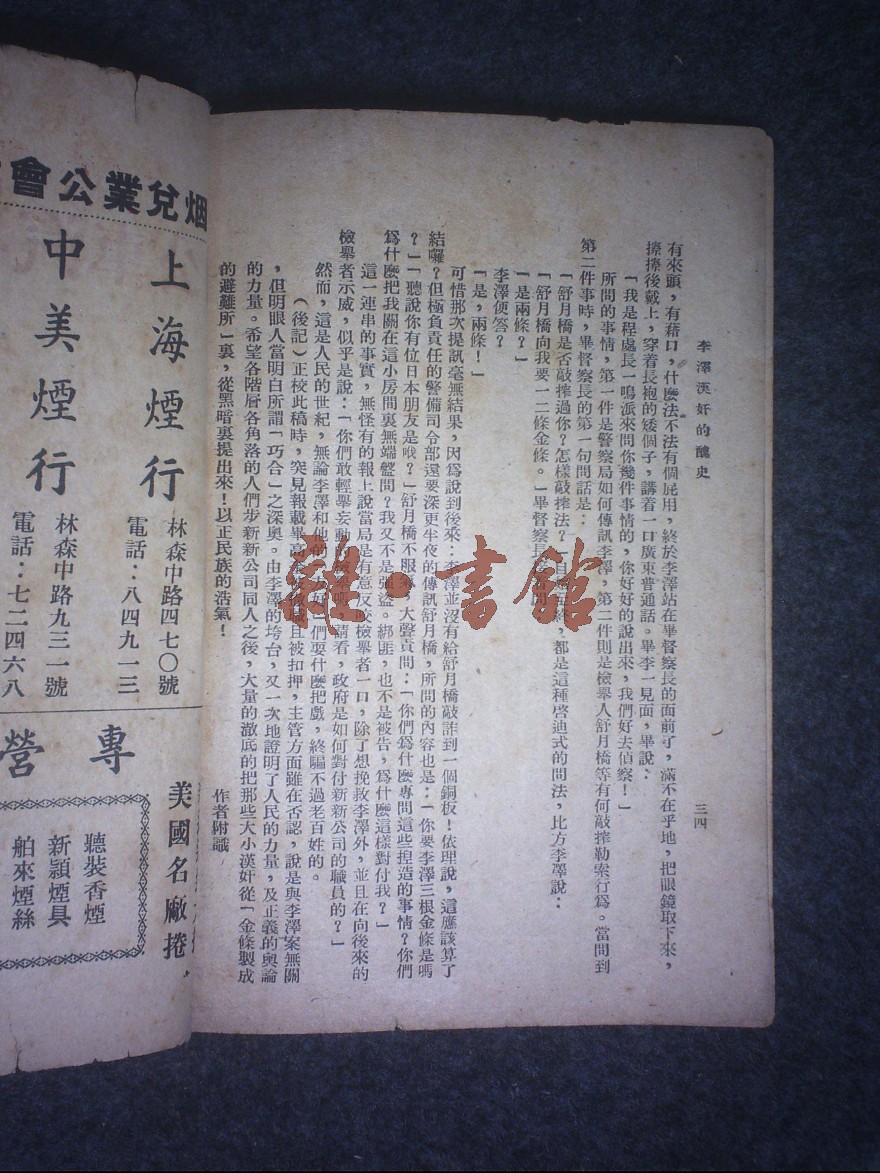 李澤漢奸的醜史
三四
有來頭，有藉口，什麼法不法有個屁用，終於李澤站在畢督察長的面前了，滿不在乎地，把眼鏡取下來，
擦擦後戴上，穿着長袍的矮個子，講着一口廣東普通話。畢李一見面，畢說：
「我是程處長一鳴派來問你幾件事情的，你好好的說出來，我們好去偵察！」
所問的事情，第一件是警察局如何傳訊李澤，第二件則是檢舉人舒月橋等有何敲搾勒索行為。當問到
第二件事時，畢督察長的第一句問話是：
「舒月橋是否敲搾過你？怎樣敲搾法？」自始至終，都是這種啓迪式的問法，比方李澤說：
「舒月橋向我要一二條金條。」畢督察長
「是兩條？」
李澤便答？
「是，兩條！」
可惜那次提訊毫無結果，因為說到後來：李澤並沒有給舒月橋敲詐到一個銅板！依理說，這應該算了
結囉？但極負責任的警備司令部還要深更半夜的傳訊舒月橋，所問的內容也是：「你要李澤三根金條是嗎
？」「聽說你有位日本朋友是哦？」舒月橋不服氣，大聲責問：「你們為什麼專問這些捏造的事情？你們
為什麼把我關在這小房間裏無端盤問？我又不是强盜。綁匪，也不是被告，為什麼這樣對付我？」
這一連串的事實，無怪有的報上說當局是有意反咬檢舉者一口，除了想挽救李澤外，並且在向後來的
檢舉者示威，似乎是說：「你們敢輕舉妄動的 請看，政府是如何對付新新公司的職員的？」
然而，這是人民的世紀，無論李澤和他的 們耍什麼把戲，終騙不過老百姓的。
（後記）正校此稿時，突見報載畢高 且被扣押，主管方面雖在否認，說是與李澤案無關
，但明眼人當明白所謂「巧合」之深奧。由李澤的垮台，又一次地證明了人民的力量，及正義的輿論
的力量。希望各階層各角落的人們步新新公司同人之後，大量的澈底的把那些大小漢奸從「金條製成
的避難所」裏，從黑暗裏提出來！以正民族的浩氣！
作者附識
雜·書館
烟兌業公會
上海煙行
林森中路四七〇號
電話：八四九一三
中美煙行
林森中路九三一號
電話：七二四六八
專營
美國名廠捲
聽裝香煙
新頴煙具
舶來煙絲